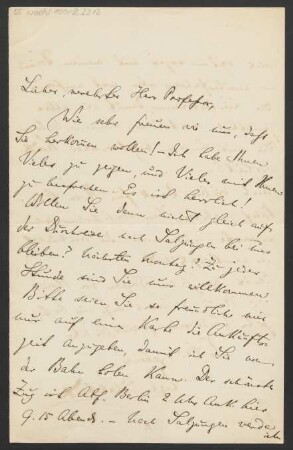 Lieber, verehrter Herr Professor,
Wie sehr freuen wir uns, daß
Sie herkommen wollen! – Ich habe Ihnen
Vieles zu zeigen, und Vieles mit Ihnen
zu besprechen. Es ist herrlich!
Wollen Sie denn nicht gleich auf
der Durchreise nach Salzungen bei uns
bleiben? Nächsten Montag? Zu jeder
Stunde sind Sie uns willkommen
Bitte seien Sie so freundlich mir
nur auf einer Karte die Ankunfts
zeit anzugeben, damit ich Sie an
der Bahn holen kann. Der schönste
Zug ist Abf. Berlin 2 Uhr Ank. hier
9.15 Abends. – Nach Salzungen werde
ich